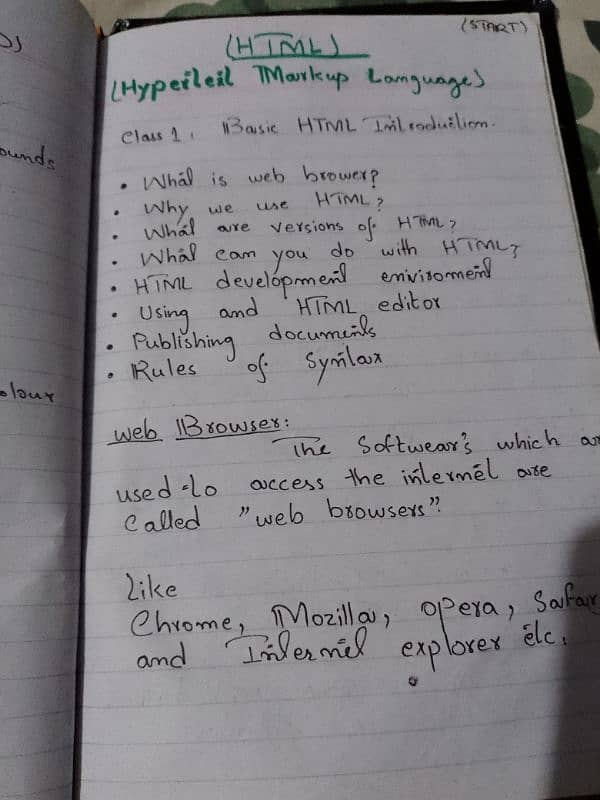 (START)
(HTML)
(Hypertext Markup Language)
Class 1 : Basic HTML Introduction.
• What is web brower?
• Why we use HTML?
• What are versions of HTML?
• What can you do with HTML?
• HTML development enviroment
• Using and HTML editor
• Publishing documents
• Rules of Syntax
ounds
olour
web Browser:
The Softwear's which ar
used to access the internet are
Called "web browsers".
Like
Chrome, Mozilla, opera, Safar
and Internet explorer etc.